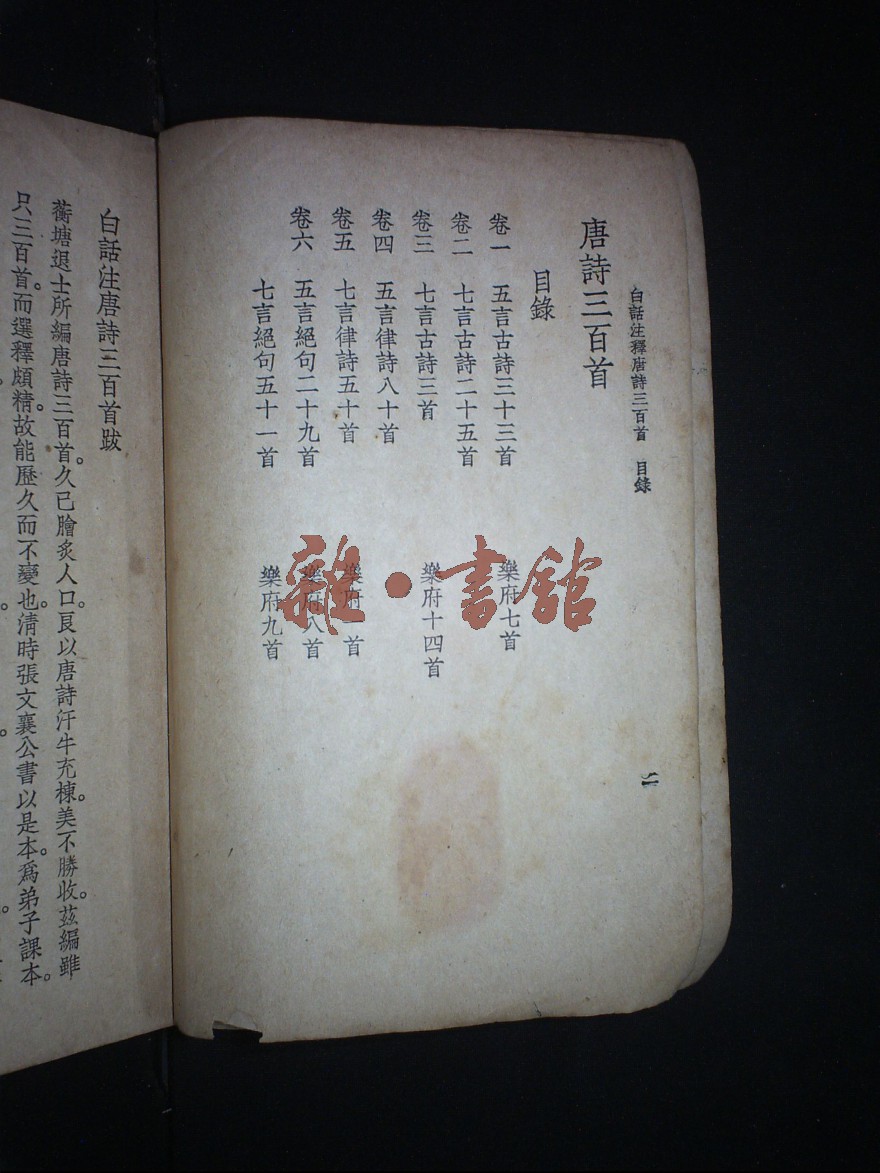 白話注釋唐詩三百首 目錄
二
唐詩三百首
目錄
卷一 五言古詩三十三首 樂府七首
卷二 七言古詩二十五首
卷三 七言古詩三首 樂府十四首
卷四 五言律詩八十首
卷五 七言律詩五十首 樂府一首
卷六 五言絕句二十九首 樂府八首
七言絕句五十一首 樂府九首
雜·書館
白話注唐詩三百首跋
蘅塘退士所編唐詩三百首。久已膾炙人口。良以唐詩汗牛充棟。美不勝收。茲編雖
只三百首。而選釋頗精。故能歷久而不變也。清時張文襄公書以是本爲弟子課本。